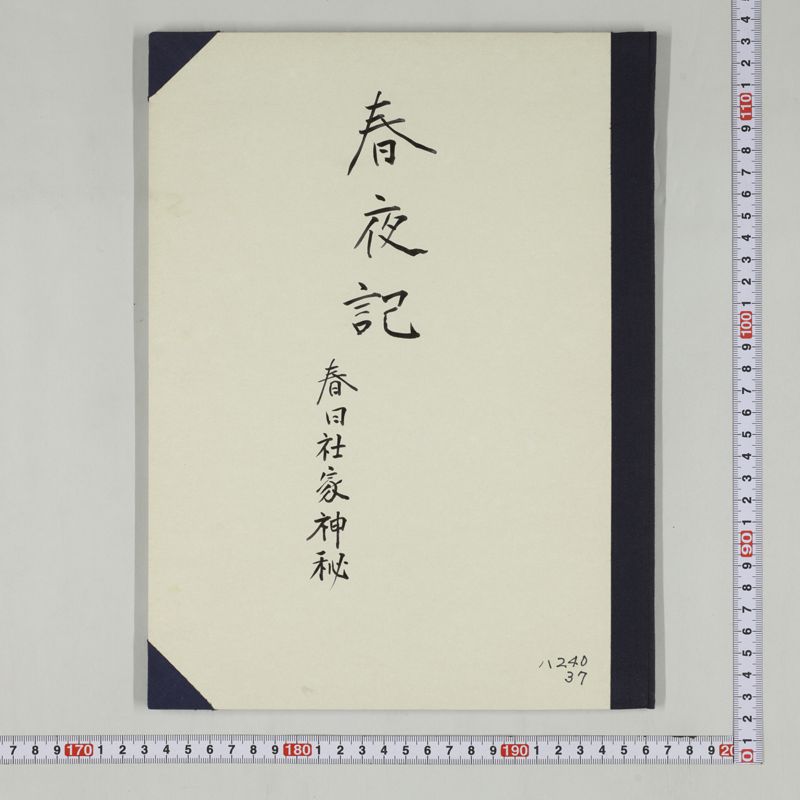 春夜記
春日社家神秘
ハ240
37
4
3
2
1
110
9
8
7
6
5
4
3
2
1
100
9
8
7
6
5
4
3
2
1
90
9
8
7
6
5
4
3
2
1
0
7 8 9 170 1 2 3 4 5 6 7 8 9 180 1 2 3 4 5 6 7 8 9 190 1 2 3 4 5 6 7 8 9 20